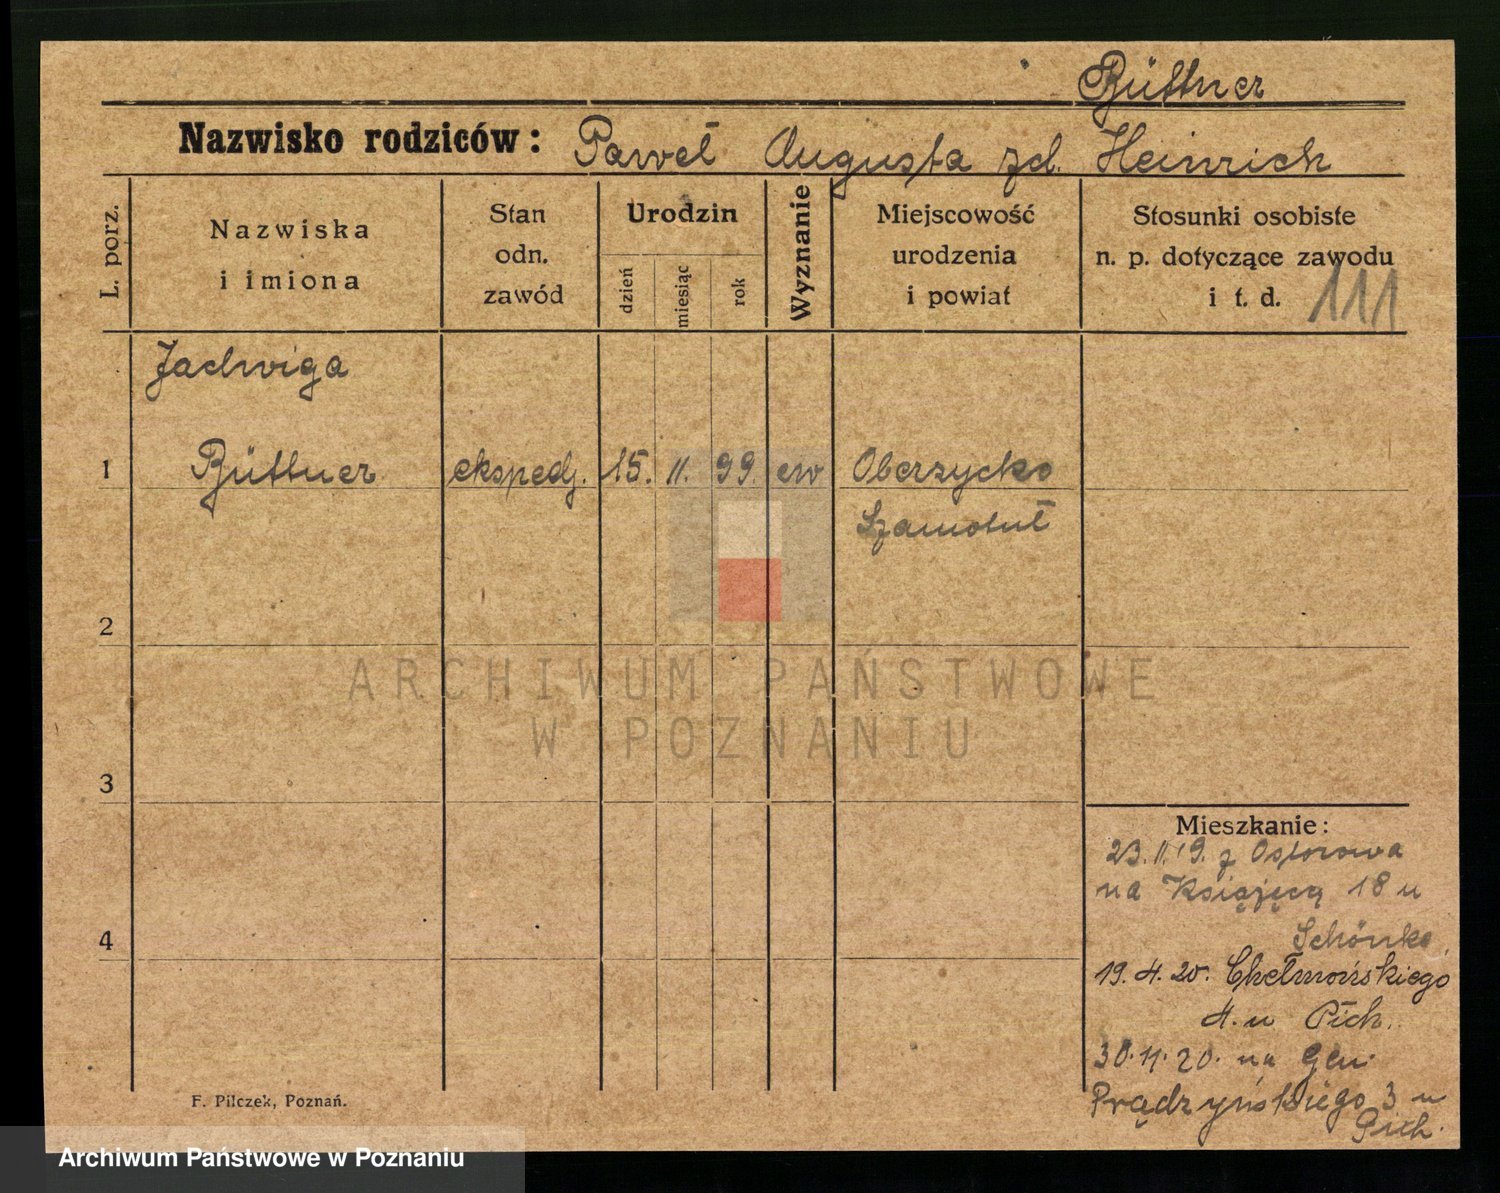 Büttner
Nazwisko rodziców: Paweł Augusta zd. Heinrich
L. porz.
Nazwiska
i imiona
Stan
odn.
zawód
Urodzin
dzień
miesiąc
rok
Wyznanie
Miejscowość
urodzenia
i powiat
Stosunki osobiste
n. p. dotyczące zawodu
i t. d. 111
Jadwiga
1 Büttner ekspedj. 15. 11. 99. ew Oberzycko
Szamotuł
2
ARCHIWUM PAŃSTWOWE
W POZNANIU
3
Mieszkanie:
23.11.19. z Ostrowa
na Książęcą 18 u
Schönke
4
19.4.20. Chełmońskiego
4. u Pich.
30.11.20. na Gen.
Prądzyńskiego 3 u
Pich.
F. Pilczek, Poznań.
Archiwum Państwowe w Poznaniu